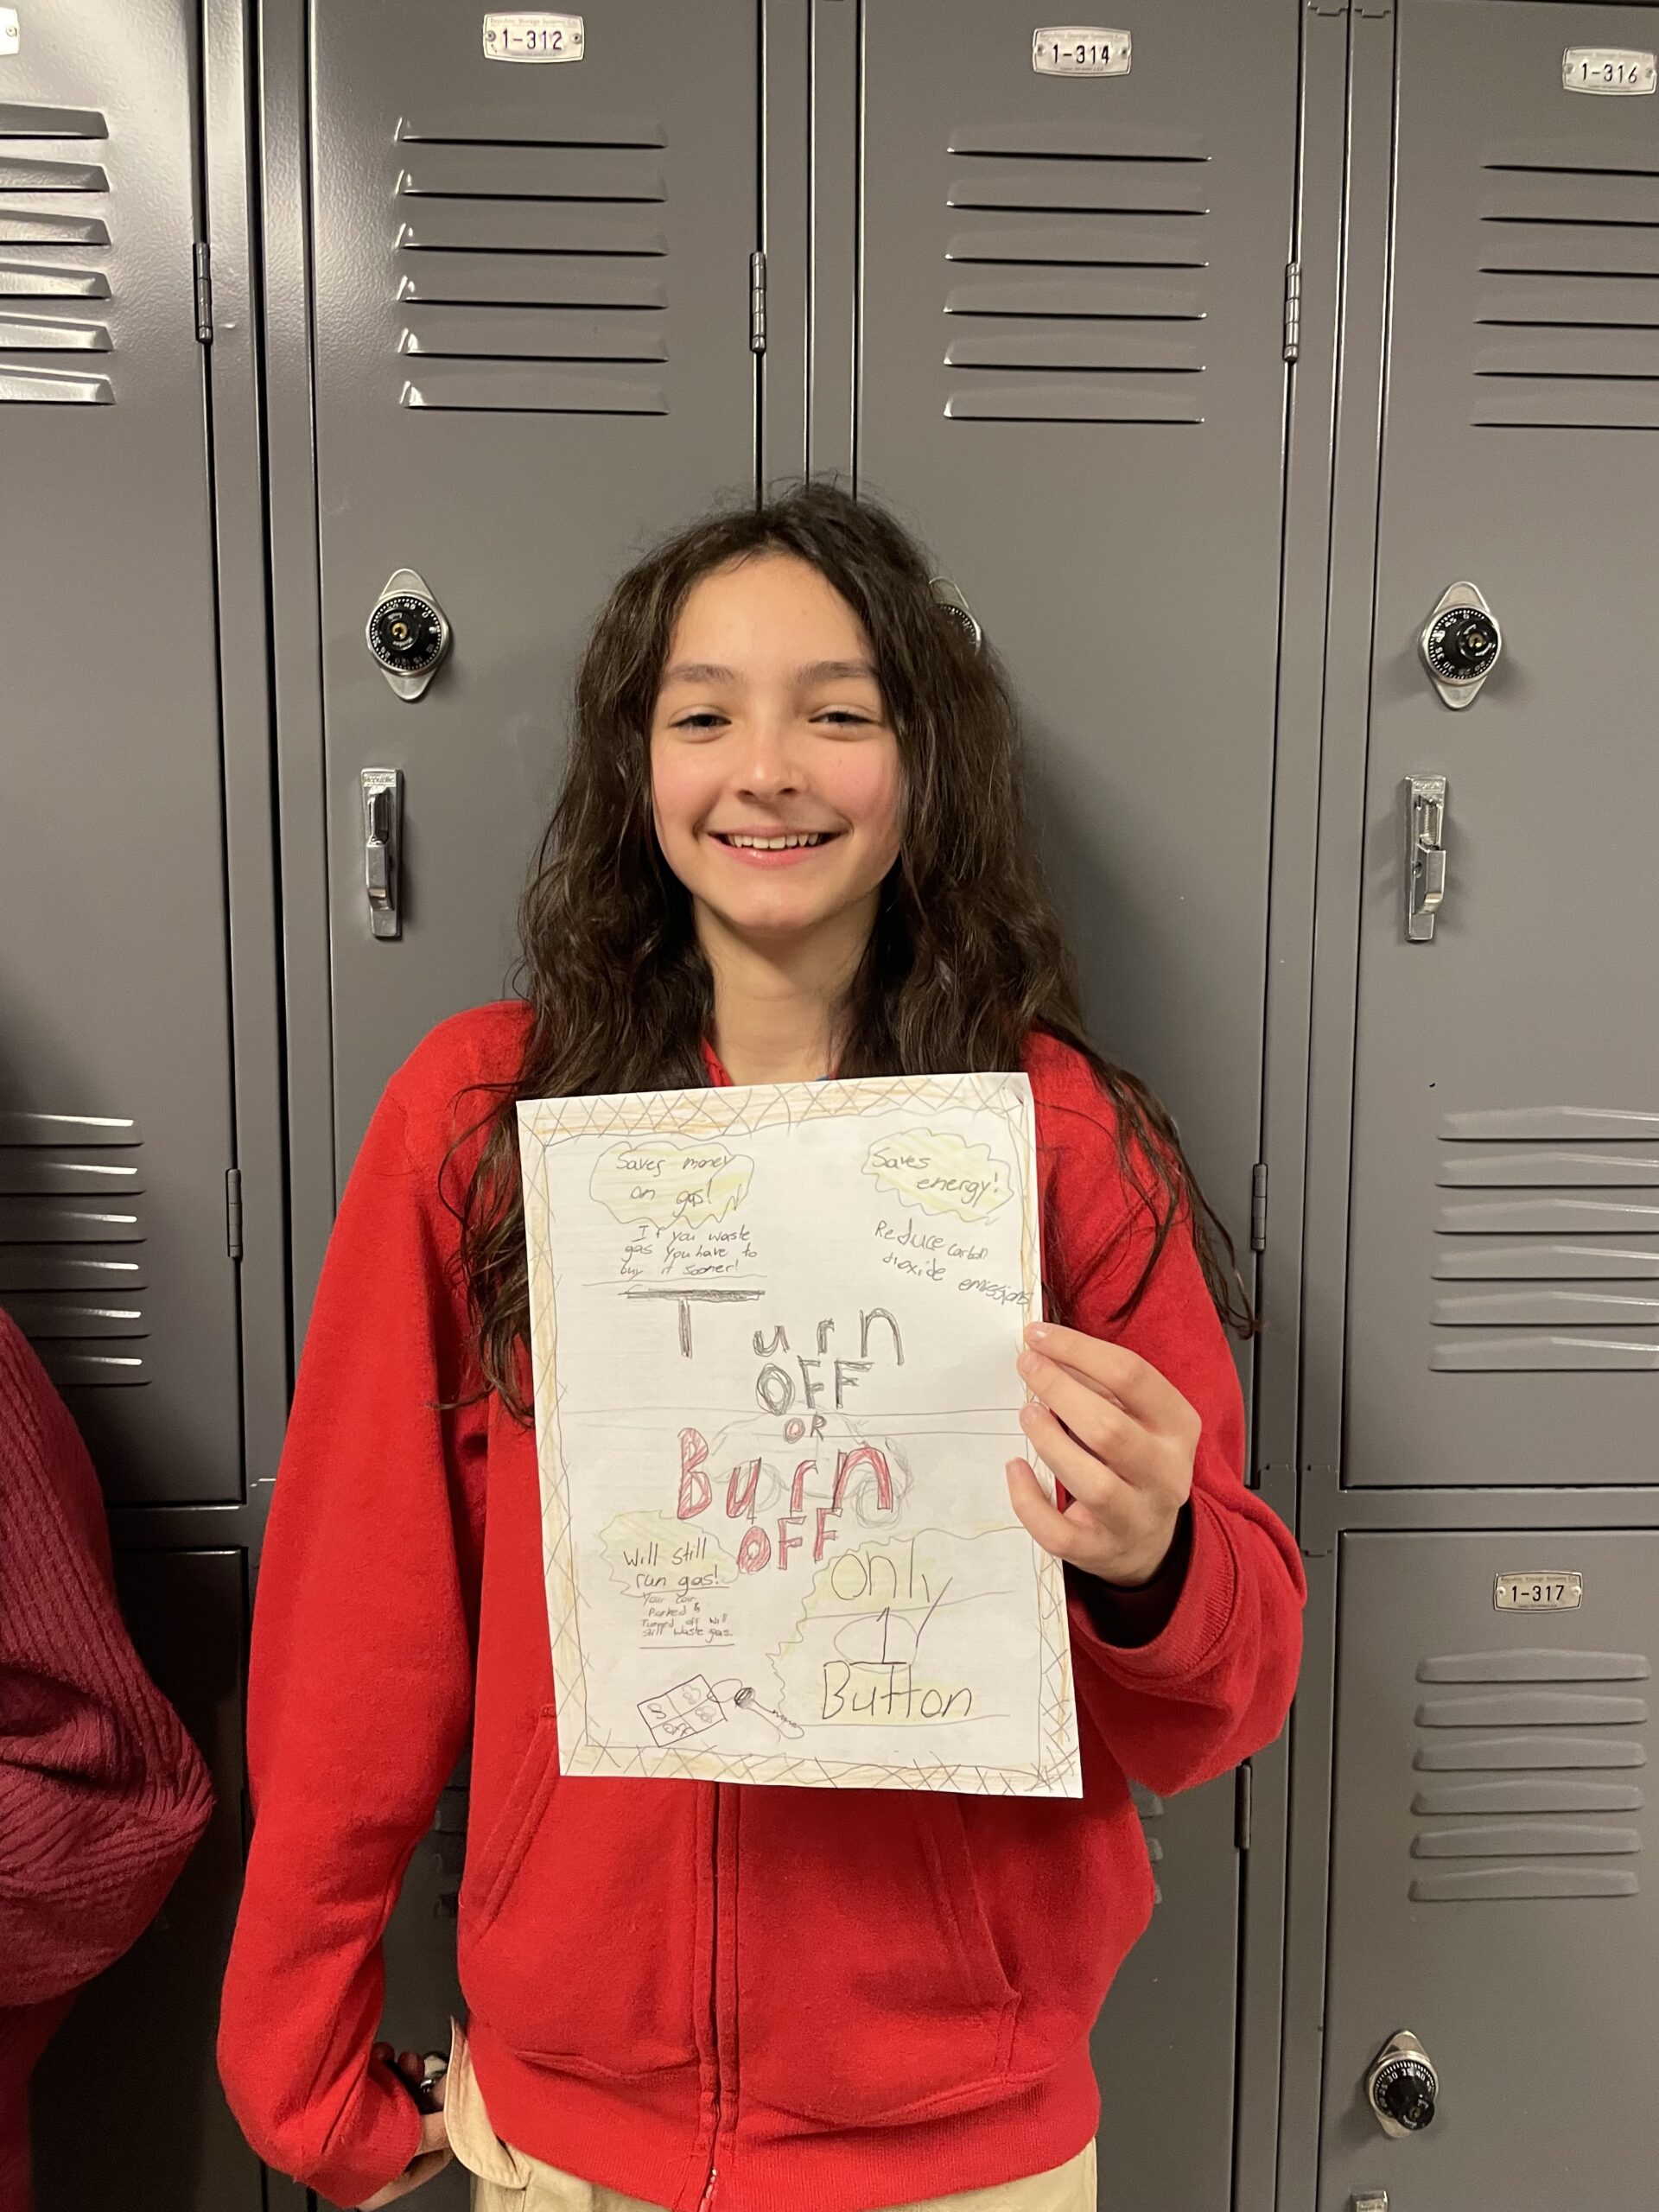 1-312
1-314
1-316
Saves money
on gas!
If you waste
gas you have to
buy it sooner!
Saves
energy!
Reduce carbon
dioxide emissions
Turn
OFF
OR
Burn
OFF
Will still
run gas!
Your car
Parked &
Turned off will
still waste gas.
only
1
Button
S
OFF
1-317